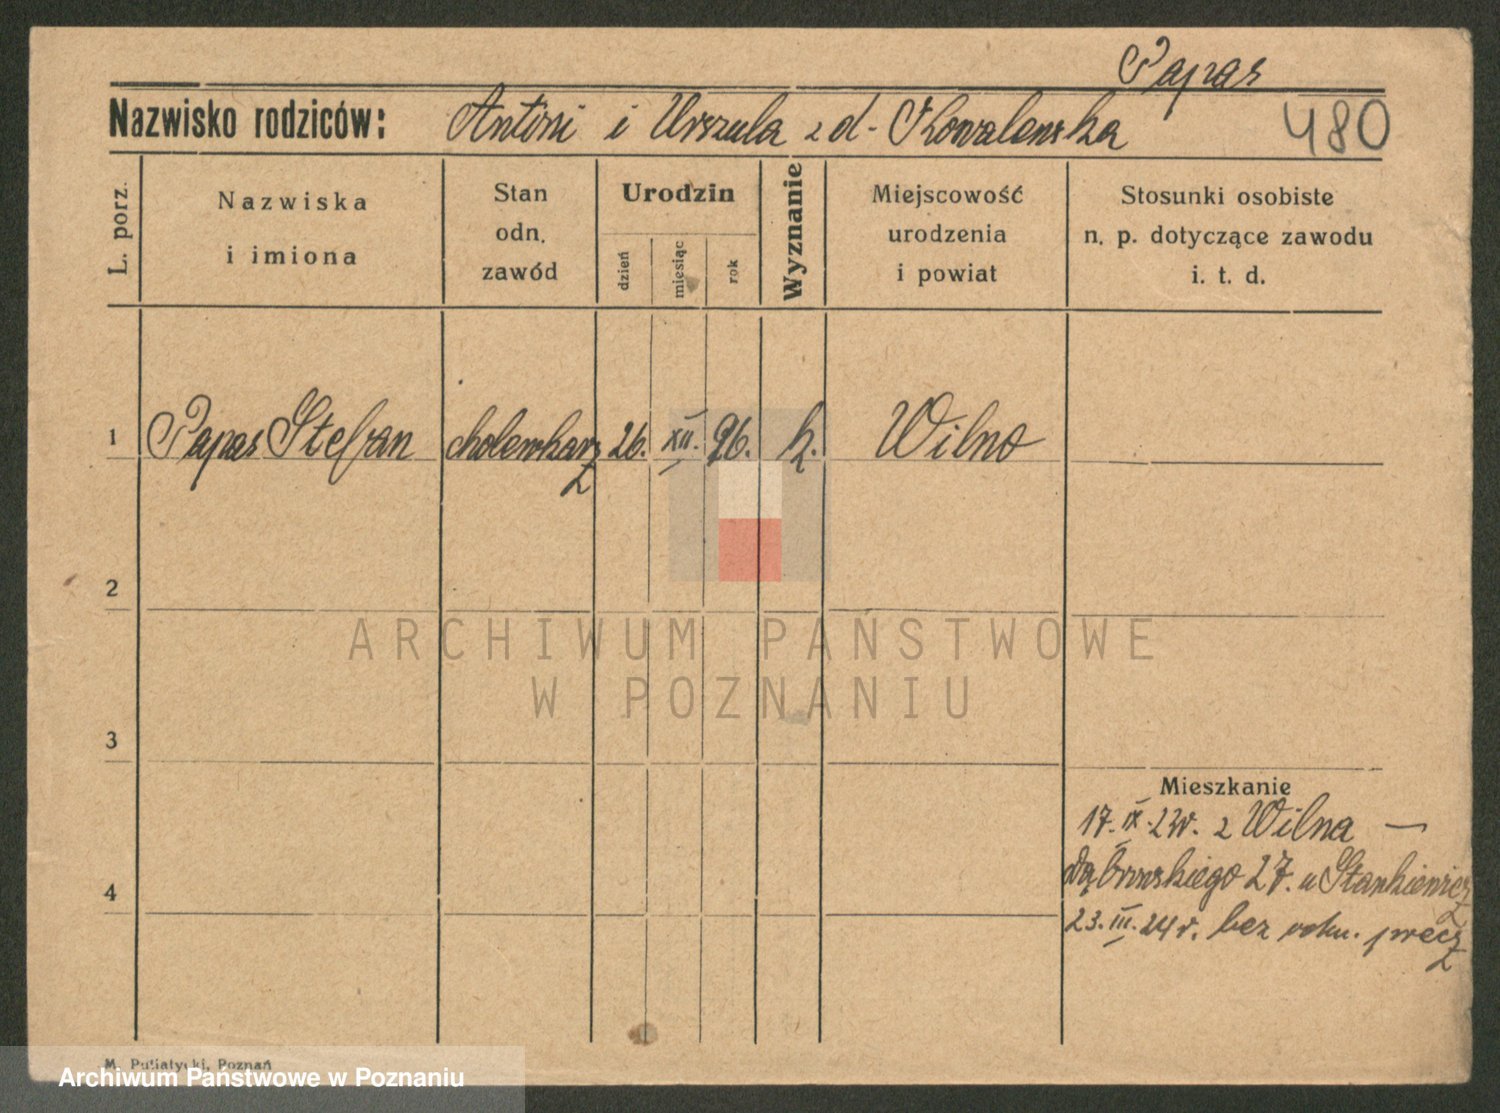 Papas
Nazwisko rodziców: Antoni i Urszula z d. Kowalewska 480
L. porz.
Nazwiska
i imiona
Stan
odn.
zawód
Urodzin
dzień
miesiąc
rok
Wyznanie
Miejscowość
urodzenia
i powiat
Stosunki osobiste
n. p. dotyczące zawodu
i. t. d.
1 Papas Stefan cholewkarz 26. XII. 96. k. Wilno
2
ARCHIWUM PAŃSTWOWE
W POZNANIU
3
Mieszkanie
17. IX. 23r. z Wilna —
4 Dąbrowskiego 27. u Stankiewicz
23. III. 24r. bez precz
M. Putiatycki, Poznań
Archiwum Państwowe w Poznaniu